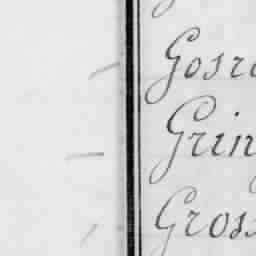 Gosr
Grin
Gross